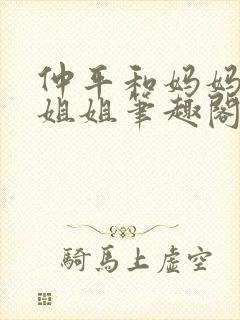 仲平和妈妈
姐姐笔趣阁
骑馬上虚空